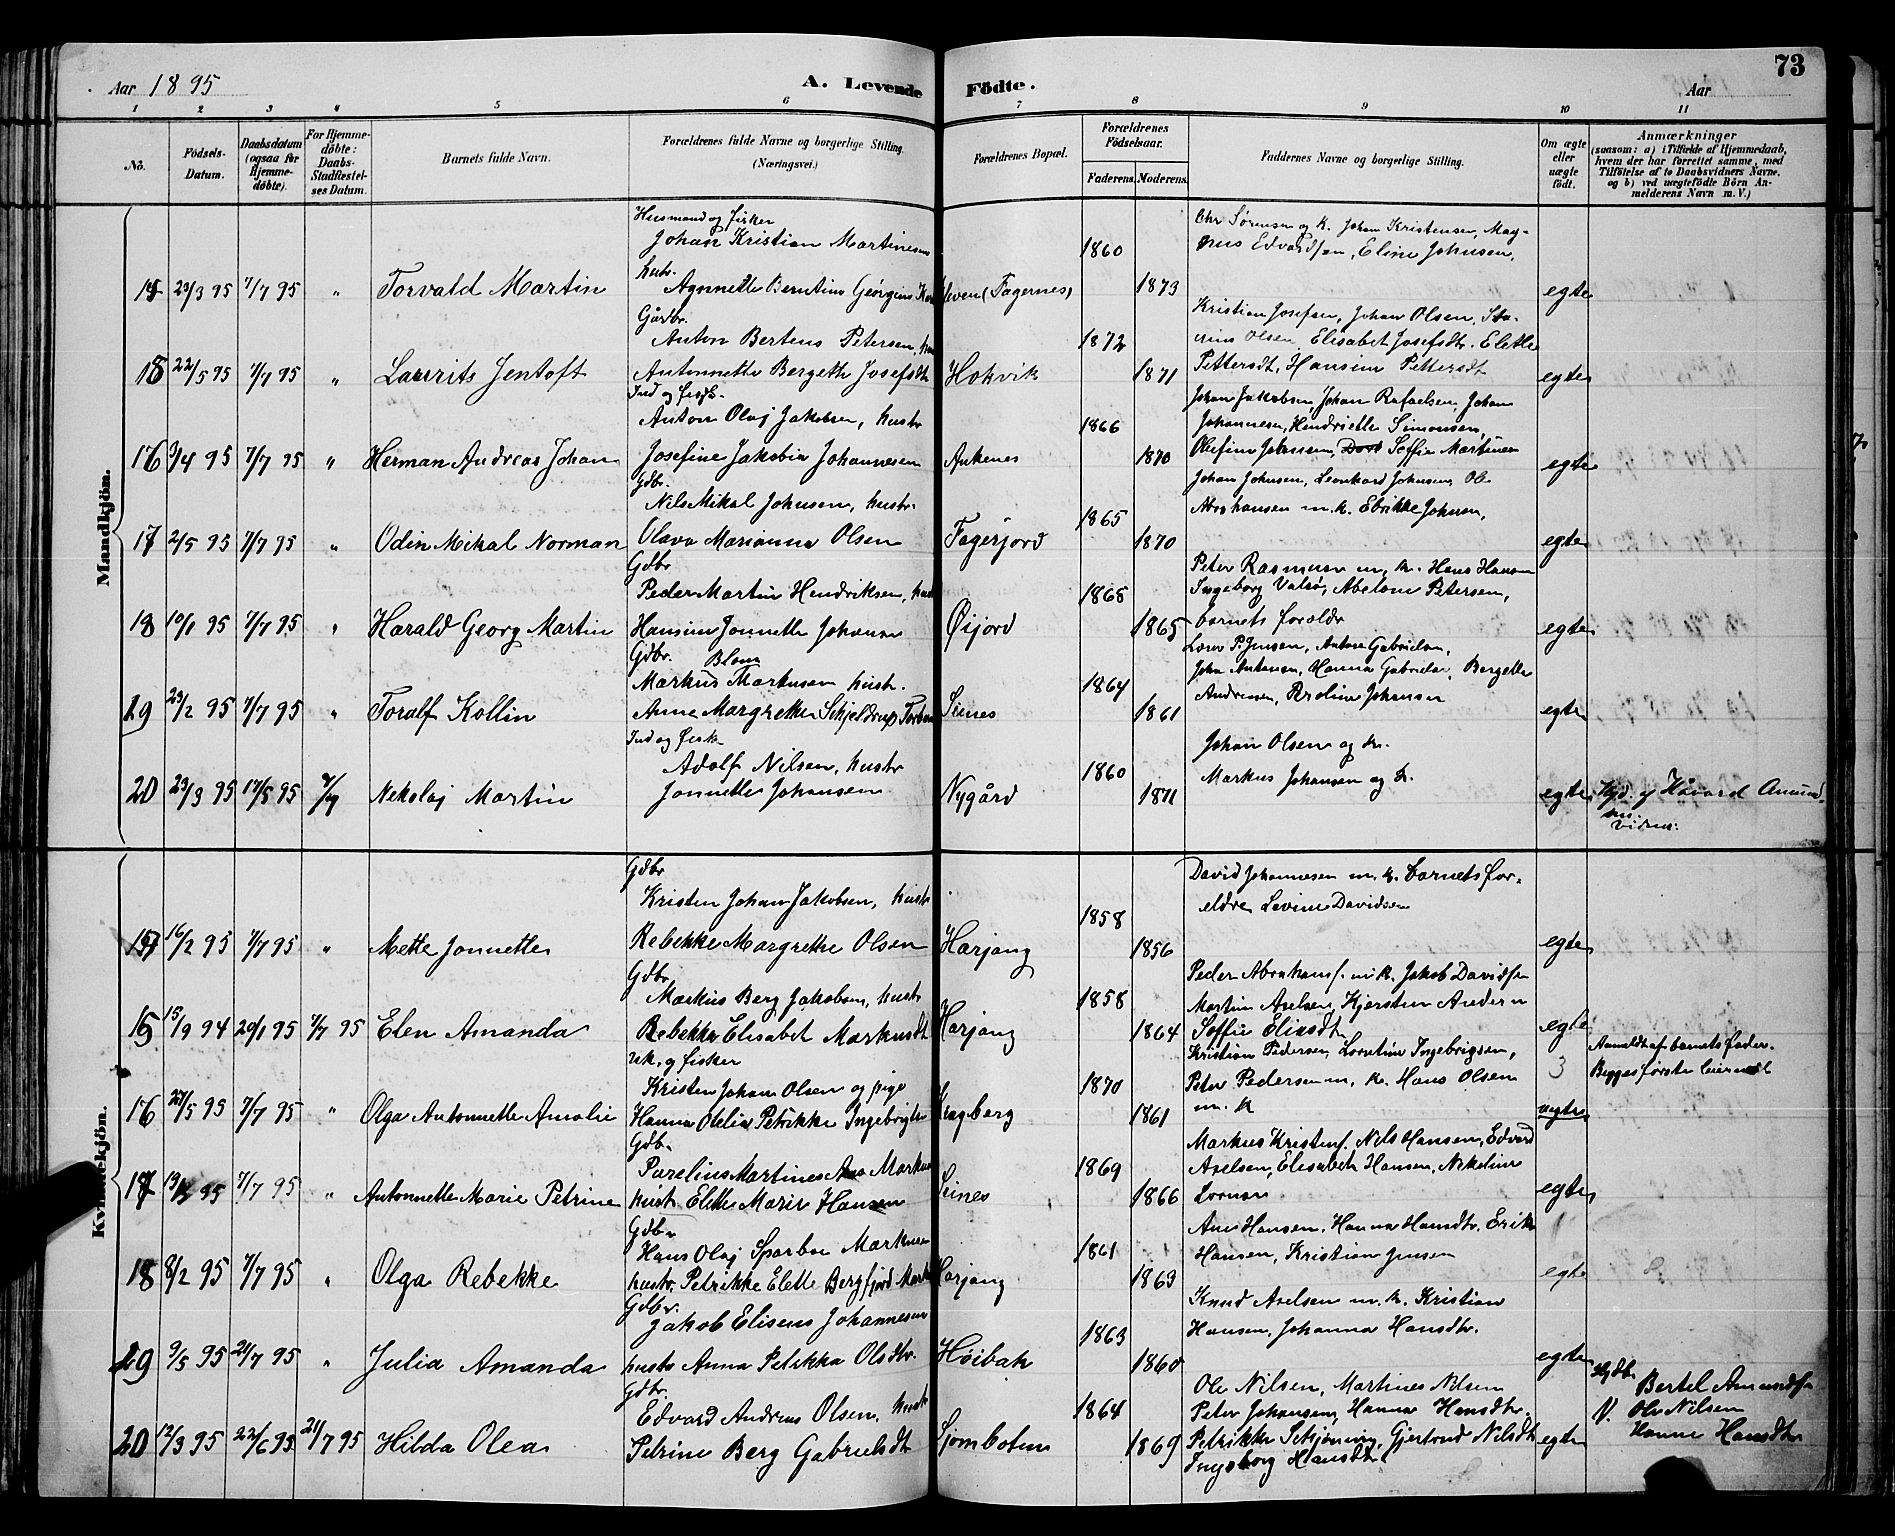 73
Aar 1895
A. Levende Födte.
Aar
1 2 3 4 5 6 7 8 9 10 11
No.
Födsels-Datum.
Daabsdatum (ogsaa for Hjemme-döbte).
For Hjemme-döbte: Daabs-Stadfæstel-ses Datum.
Barnets fulde Navn.
Forældrenes fulde Navne og borgerlige Stilling. (Næringsvei.)
Forældrenes Bopæl.
Forældrenes Födselsaar.
Faderens. Moderens.
Faddernes Navne og borgerlige Stilling.
Om ægte eller uægte födt.
Anmærkninger
(saasom: a) i Tilfælde af Hjemmedaab,
hvem der har forrettet samme, med
Tilföielse af to Daabsvidners Navne,
og b) ved uægtefödte Börn An-
melderens Navn m. V.)
Mandkjön.
Husmand og fisker
Johan Kristian Martinesen
hustr.
23/3 95 7/7 95 " Torvald Martin Agnnette Berntine Georgine (Fagernes) 1860 1873 egte
Chr Sørensen og k. Johan Kristensen, Mag-
nus Edvardsen, Eline Johnsen,
Gårdbr.
Anton Bertens Petersen,
22/5 95 7/7 95 " Laurits Jentoft Antonnette Bergette Josefsdt Hokvik 1872 1871 egte
Kristian Josefsen, Johan Olsen,
Olsen Elisabet Josefsdtr. Elette
Pettersdt, Hansine Pettersdt
Ind og fisk.
Anton Olaj Jakobsen, hustr
16 3/4 95 7/7 95 " Herman Andreas Johan Josefine Jakobia Johannesen Ankenes 1866 1870 egte
Johan Jakobsen, Johan Rafaelsen, Johan
Johannesen, Hendriette Simonsen,
Olefine Johansen, Soffie Martinsen
Gdbr.
Nils Mikal Johnsen, hustr.
17 2/5 95 7/7 95 " Odin Mikal Norman Olava Marianna Olsen Fagerjord 1865 1870 egte
Johan Johnsen, Leonhard Johnsen, Ole
Abrahansen m. k. Johnsen,
Gdbr
Peder Martin Hendriksen,
18 10/1 95 7/7 95 " Harald Georg Martin Hansine Jonnette Johansen Øijord 1865 1865 egte
Peter Rasmusen m. k. Hans Hansen
Ingeborg Valsø, Abelone Petersen,
barnets forældr
Gdbr. Blom
Markus Markusen hustr.
19 23/2 95 7/7 95 " Toralf Kollin Anne Margrethe Schjeldrup Seines 1864 1861 egte
P. Jensen, Anton Gabrielsen,
John Antonsen, Hanna Gabrielsen, Bergette
Andresen, Johnsen
Ind og fisk.
Adolf Nilsen, hustr
20 23/3 95 17/5 95 7/7 Nekolaj Martin Jonnette Johansen Nygård 1860 1871 egte
Johan Olsen og k.
Markus Johansen og k.
Hjd. af Håvard Amund-
sen.
Kvindekjön.
Gdbr
Kristen Johan Jakobsen, hustr
16/2 95 7/7 95 " Mette Jonnette Rebekke Margrethe Olsen Harjang 1858 1856 egte
David Johannesen m. k. barnets for-
eldre Levine Davidsen
Gdbr
Markus Berg Jakobsen, hustr
15 15/9 94 20/1 95 7/7 95 Elen Amanda Rebekka Elisabet Markusdt Harjang 1858 1864 egte
Peder Abrahamsf. m. k. Jakob Davidsen
Martin Axelsen, Kjersten Andersn
Soffie Eliasdtr
uk. og fisker
Kristen Johan Olsen og pige
16 23/5 95 7/7 95 " Olga Antonnette Amalie Hanna Otelia Petrikke Ingebrigtsn 1870 1861 3 uegte
Kristian Pedersen, Lorntine Ingebrigsen,
Peter Pedersen m. k. Hans Olsen
m. k
Anmeldt af barnets fader.
Begges første leiermål
Gdb.
Parelius Martines Markus
17 7/7 95 " Antonnette Marie Petrine hustr Elette Marie Hansen Seines 1869 1866 egte
Markus Kristensf. Nils Hansen, Edvard
Axelsen, Elisabeth Hansen, Nekoline
Gdbr
Hans Olaj Sparboe Markusen
18 8/2 95 7/7 95 " Olga Rebekke hustr Petrikke Elette Bergfjord Harjang 1861 1863 egte
Hansen, Hanna Hansdtr. Erik
Hansen, Kristian Jensen
Gdbr.
Jakob Elisens Johannesen
19 9/5 95 21/7 95 " Julia Amanda hustr Anna Petrikka Olsdtr. Høibak 1863 1860 egte
Knud Axelsen m. k. Kristian
Hansen, Johanna Hansdtr.
Gdbr.
Edvard Andreas Olsen, hustr
20 12/3 95 22/6 95 21/7 95 Hilda Olea Petrine Berg Gabrielsdt Sjombotn 1864 1869 egte
Ole Nilsen, Martines Nilsen
Peter Johansen, Hanna Hansdtr.
Petrikke Schjøning, Gjertrud Nilsdt
Ingeborg Hansdtr
Hjdbr Bertel Amundsf
V. Ole Nilsen
Hanna Hansdtr